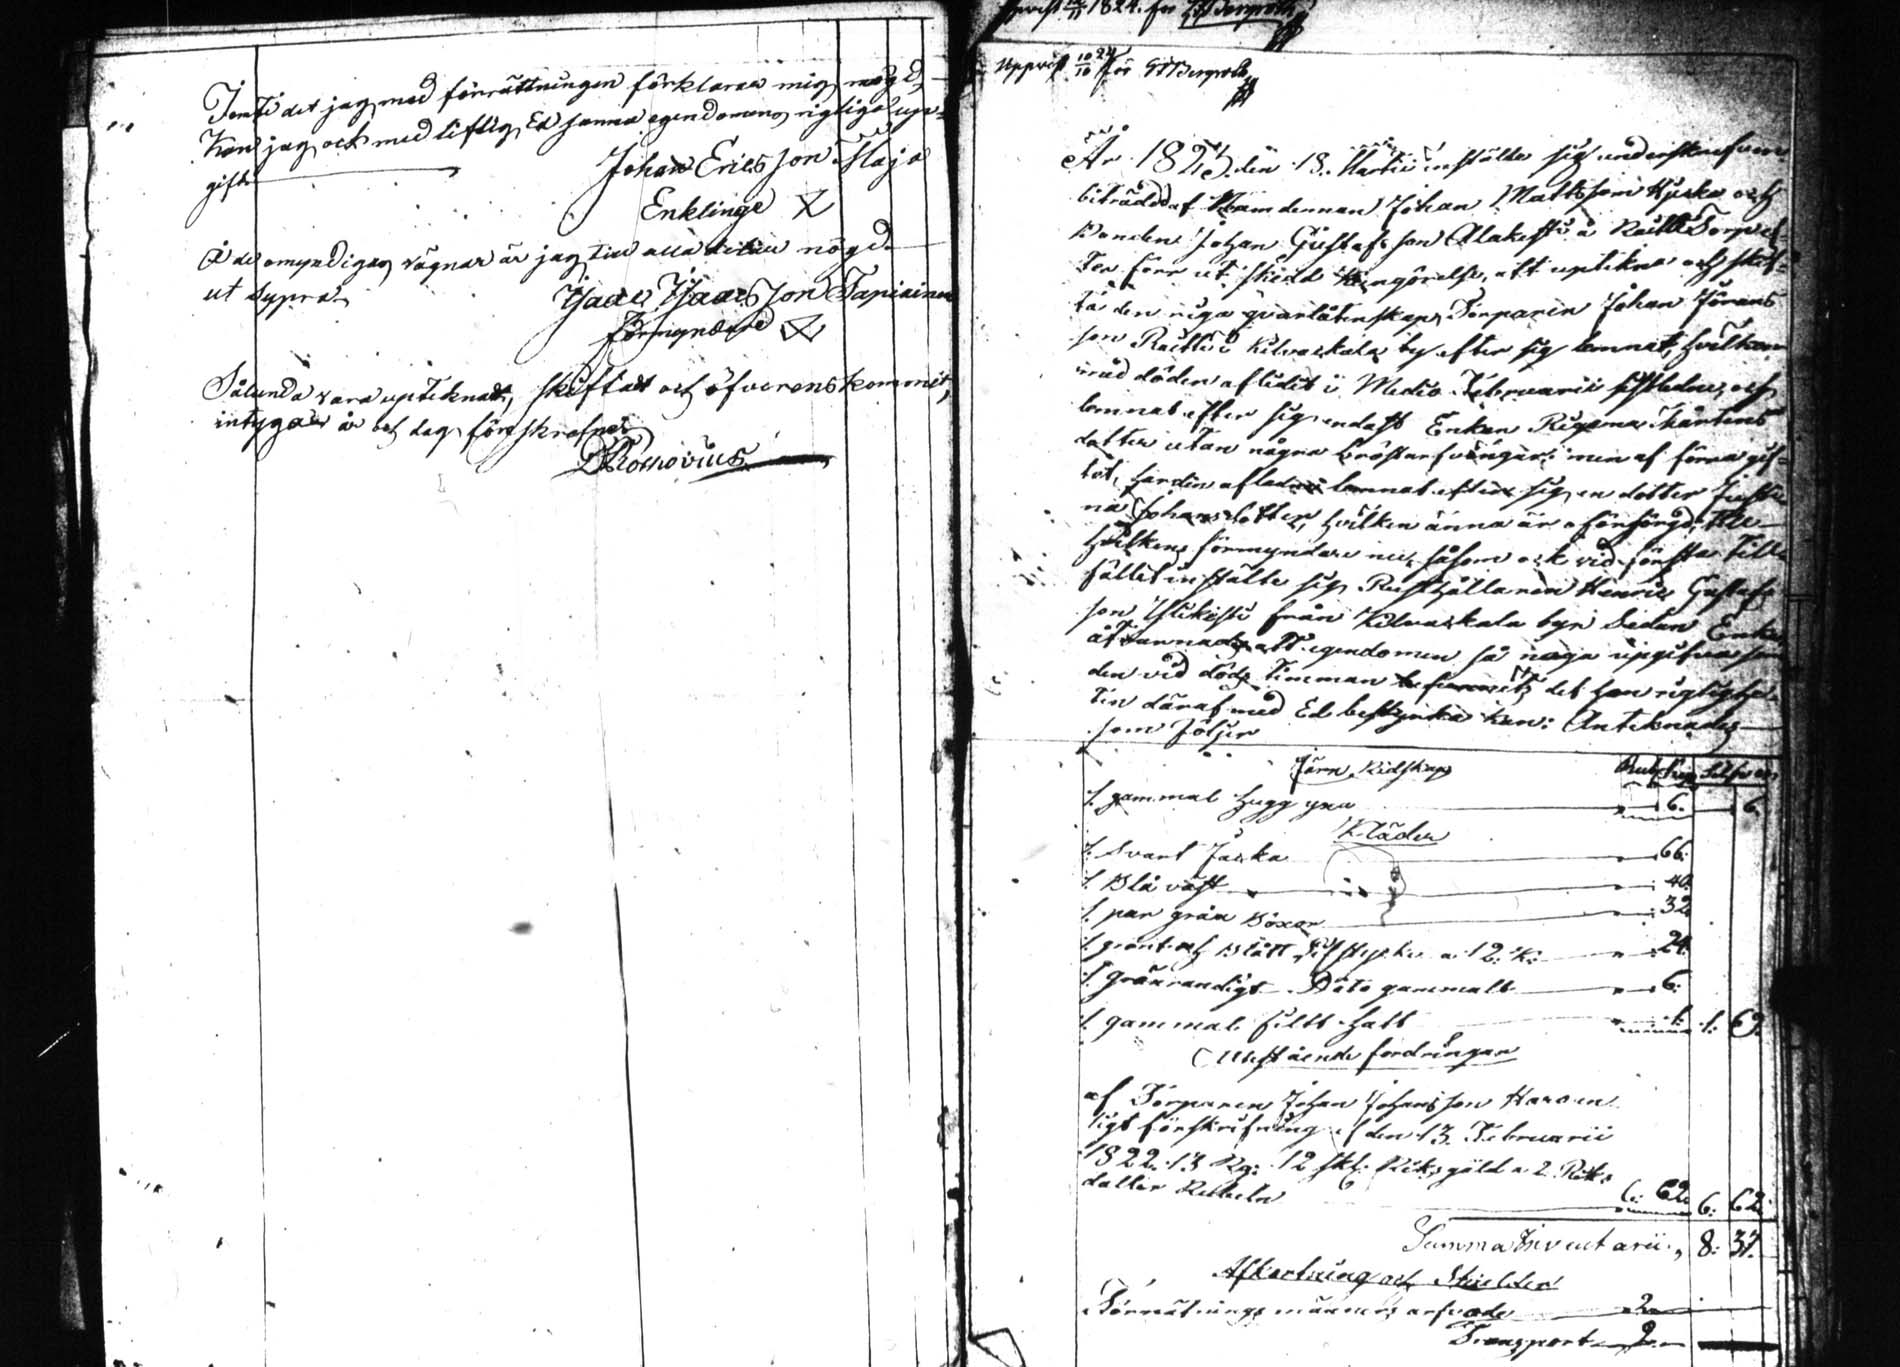 Jemte det jag med förrättningen förklarar mig nögd,
kan jag och med liflig Ed sanna egendomens rigtiga upp-
gift
Johan Ericsson Maja
Enklinge X
På de omyndigas vägnar är jag till alla delar nögd
ut supra
Isaac Isaacsson Tapiainen
Förmyndare X
Sålunda vara uptecknadt, skiftat och öfverenskommit,
intygar år och dag förrskrefne
Rothovius
1824 för
Uppvist 10/10 24 för
År 1823 den 13 Martii instälte sig undersknefven
biträdd af Nämdeman Johan Mattsson Huska och
Bonden Johan Gustafsson Alakesti å Raitti Torpet
förr ut skedd kungörelse, att uptekna och skif-
ta den ringa qvarlåtenskap, Torparen Johan Görans
son Raitti i Kilvaskala by efter sig lemnat, hvilken
med döden aflidit i Medio Februarii sistledne, och
lemnat efter sig endast Enkan Regina Mårtens
dotter utan några bröstarfvingar, men af förra gif-
tet, har den aflidne lemnat efter sig en dotter Justi-
na Johansdotter, hvilken änna är oförsörgd, till
hvilkens förmyndare nu, såsom ock vid första till
fället instälte sig Rusthållaren Henric Gustafs
son Ylikesti från Kilvaskala by; Sedan Enkan
åtvarnades att egendomen så noga upgifva som
den vid döds timman befunnits, det hon riglighe-
ten däraf med Ed bestyrka kan; Anteknades
som följer
Järn Redskap
Rub. Kop. Silfver
1. gammal hugg yxa 6. 6.
Kläder
1. Svart Jacka 66.
1. Blå väst 40.
1. par gråa Böxor 32.
1. grönt och 1 blått lifstycke a 12. k: 24.
1. gråkrandigt Dito gammalt 6.
1. gammal filts hatt 1. 1: 69.
Utestående fordringar
af Torparen Johan Johansson Haroin
ligt förskrifning af den 13. Februarii
1822. 13 Rg: 12 sk. Riksgäld a 2 Riks
daller Rubeln 6: 62. 6: 62.
Summa Inventarii 8: 37.
Afkortning och Skulder
Förrättnings männers arfvode 2
Transport 2